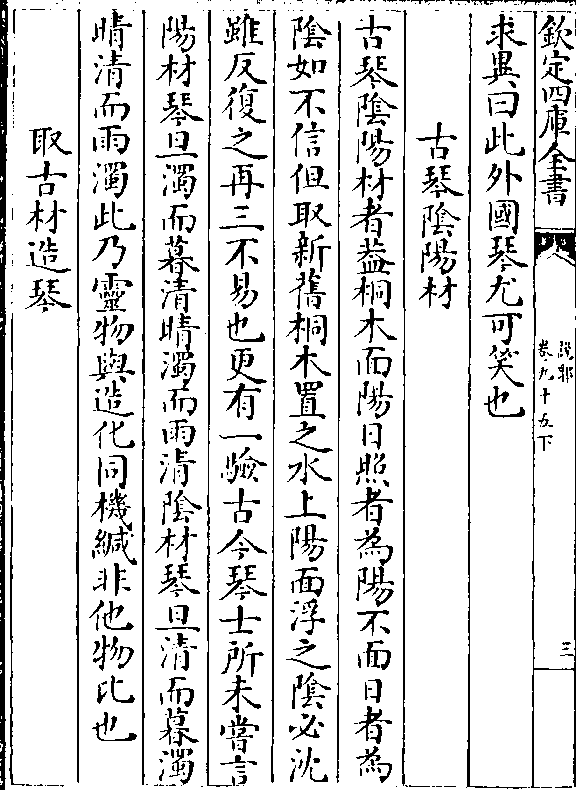 欽定四庫全書
說郛
卷九十五下
三
求異曰此外國琴尤可笑也
古琴陰陽材
古琴陰陽材者葢桐木面陽日照者為陽不面日者為
陰如不信但取新舊桐木置之水上陽面浮之陰必沈
雖反復之再三不易也更有一驗古今琴士所未嘗言
陽材琴旦濁而暮清晴濁而雨清陰材琴旦清而暮濁
晴清而雨濁此乃靈物與造化同機緘非他物比也
取古材造琴